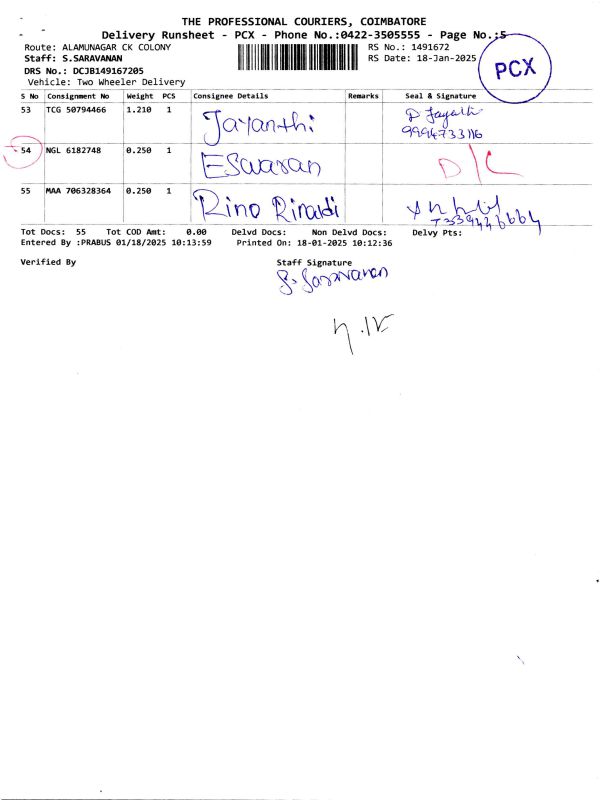 THE PROFESSIONAL COURIERS, COIMBATORE
Delivery Runsheet - PCX - Phone No.:0422-3505555 - Page No.:5
Route: ALAMUNAGAR CK COLONY
RS No.: 1491672
Staff: S.SARAVANAN
RS Date: 18-Jan-2025
DRS No.: DCJB149167205
Vehicle: Two Wheeler Delivery
PCX
S No Consignment No Weight PCS Consignee Details Remarks Seal & Signature
53 TCG 50794466 1.210 1 Jayanthi
54 NGL 6182748 0.250 1 Eswaran D/C
55 MAA 706328364 0.250 1 Rino Rinaldi
Tot Docs: 55 Tot COD Amt: 0.00 Delvd Docs: Non Delvd Docs: Delvy Pts:
Entered By :PRABUS 01/18/2025 10:13:59 Printed On: 18-01-2025 10:12:36
Verified By Staff Signature
S. Saravanan